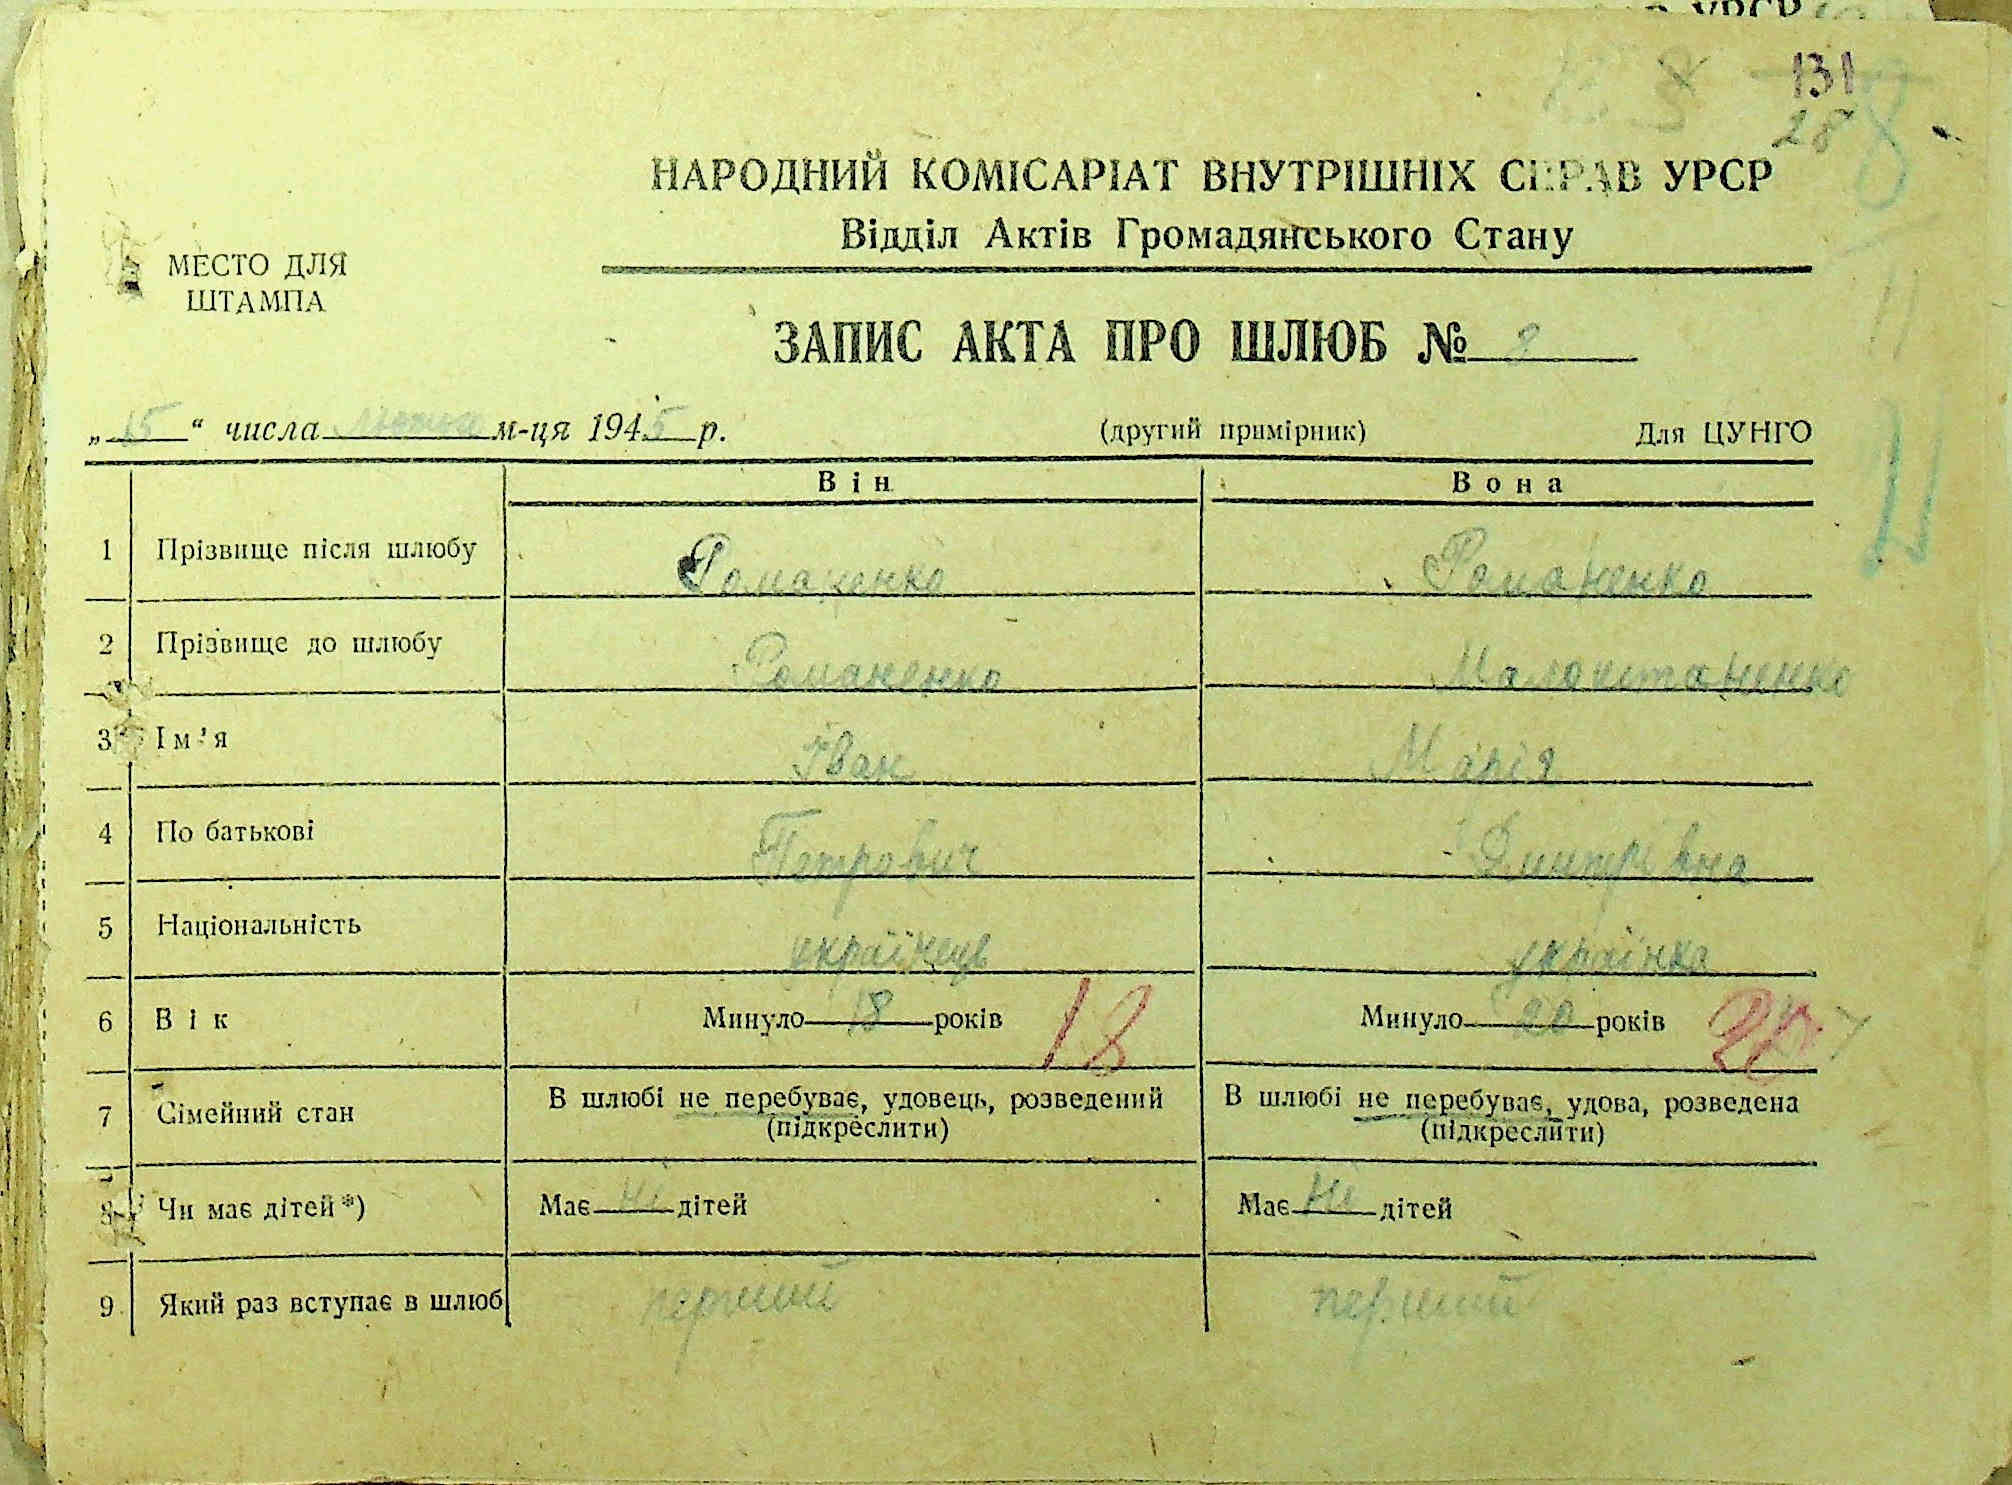 131
28
НАРОДНИЙ КОМІСАРІАТ ВНУТРІШНІХ СПРАВ УРСР
Відділ Актів Громадянського Стану
МЕСТО ДЛЯ
ШТАМПА
ЗАПИС АКТА ПРО ШЛЮБ №
„15“ числа лютого м-ця 1945 р. (другий примірник) Для ЦУНГО
Він Вона
1 Прізвище після шлюбу Романенко Романенко
2 Прізвище до шлюбу Романенко
3 Ім'я Іван Марія
4 По батькові Петрович Дмитрівна
5 Національність українець українка
6 Вік Минуло 18 років 18 Минуло 20 років 20
7 Сімейний стан В шлюбі не перебуває, удовець, розведений В шлюбі не перебуває, удова, розведена
(підкреслити) (підкреслити)
8 Чи має дітей*) Має ні дітей Має ні дітей
9 Який раз вступає в шлюб перший перший